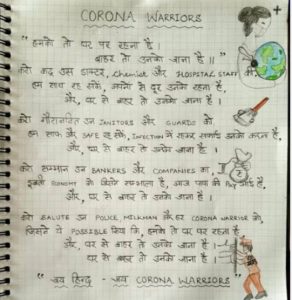 CORONA WARRIORS
"हमको तो घर पर रहना है ।
बाहर तो उनको जाना है ॥"
करो कद्र उस डाक्टर, Chemist और HOSPITAL STAFF की,
हम साथ रह सकें, अपनों से दूर उनको रहना है,
और, घर से बाहर तो उनको जाना है ।
करो गौरान्वित उन JANITORS और GUARDS को,
हम साफ और SAFE रह सकें, INFECTION में जाकर सफाई उनको करना है,
और, घर से बाहर तो उनको जाना है ।
करो सम्मान उन BANKERS और COMPANIES का,
इसकी ECONOMY को जिसने सम्भाला है, आज पास की PAY आई है,
और, घर से बाहर तो उनको जाना है ।
करो SALUTE उन POLICE, MILKMAN और हर CORONA WARRIOR को,
जिसने ये POSSIBLE किया कि, हमको तो घर पर रहना है,
और, घर से बाहर तो उनको जाना है
घर से बाहर तो उनको जाना है ।
"जय हिन्द - जय CORONA WARRIORS"